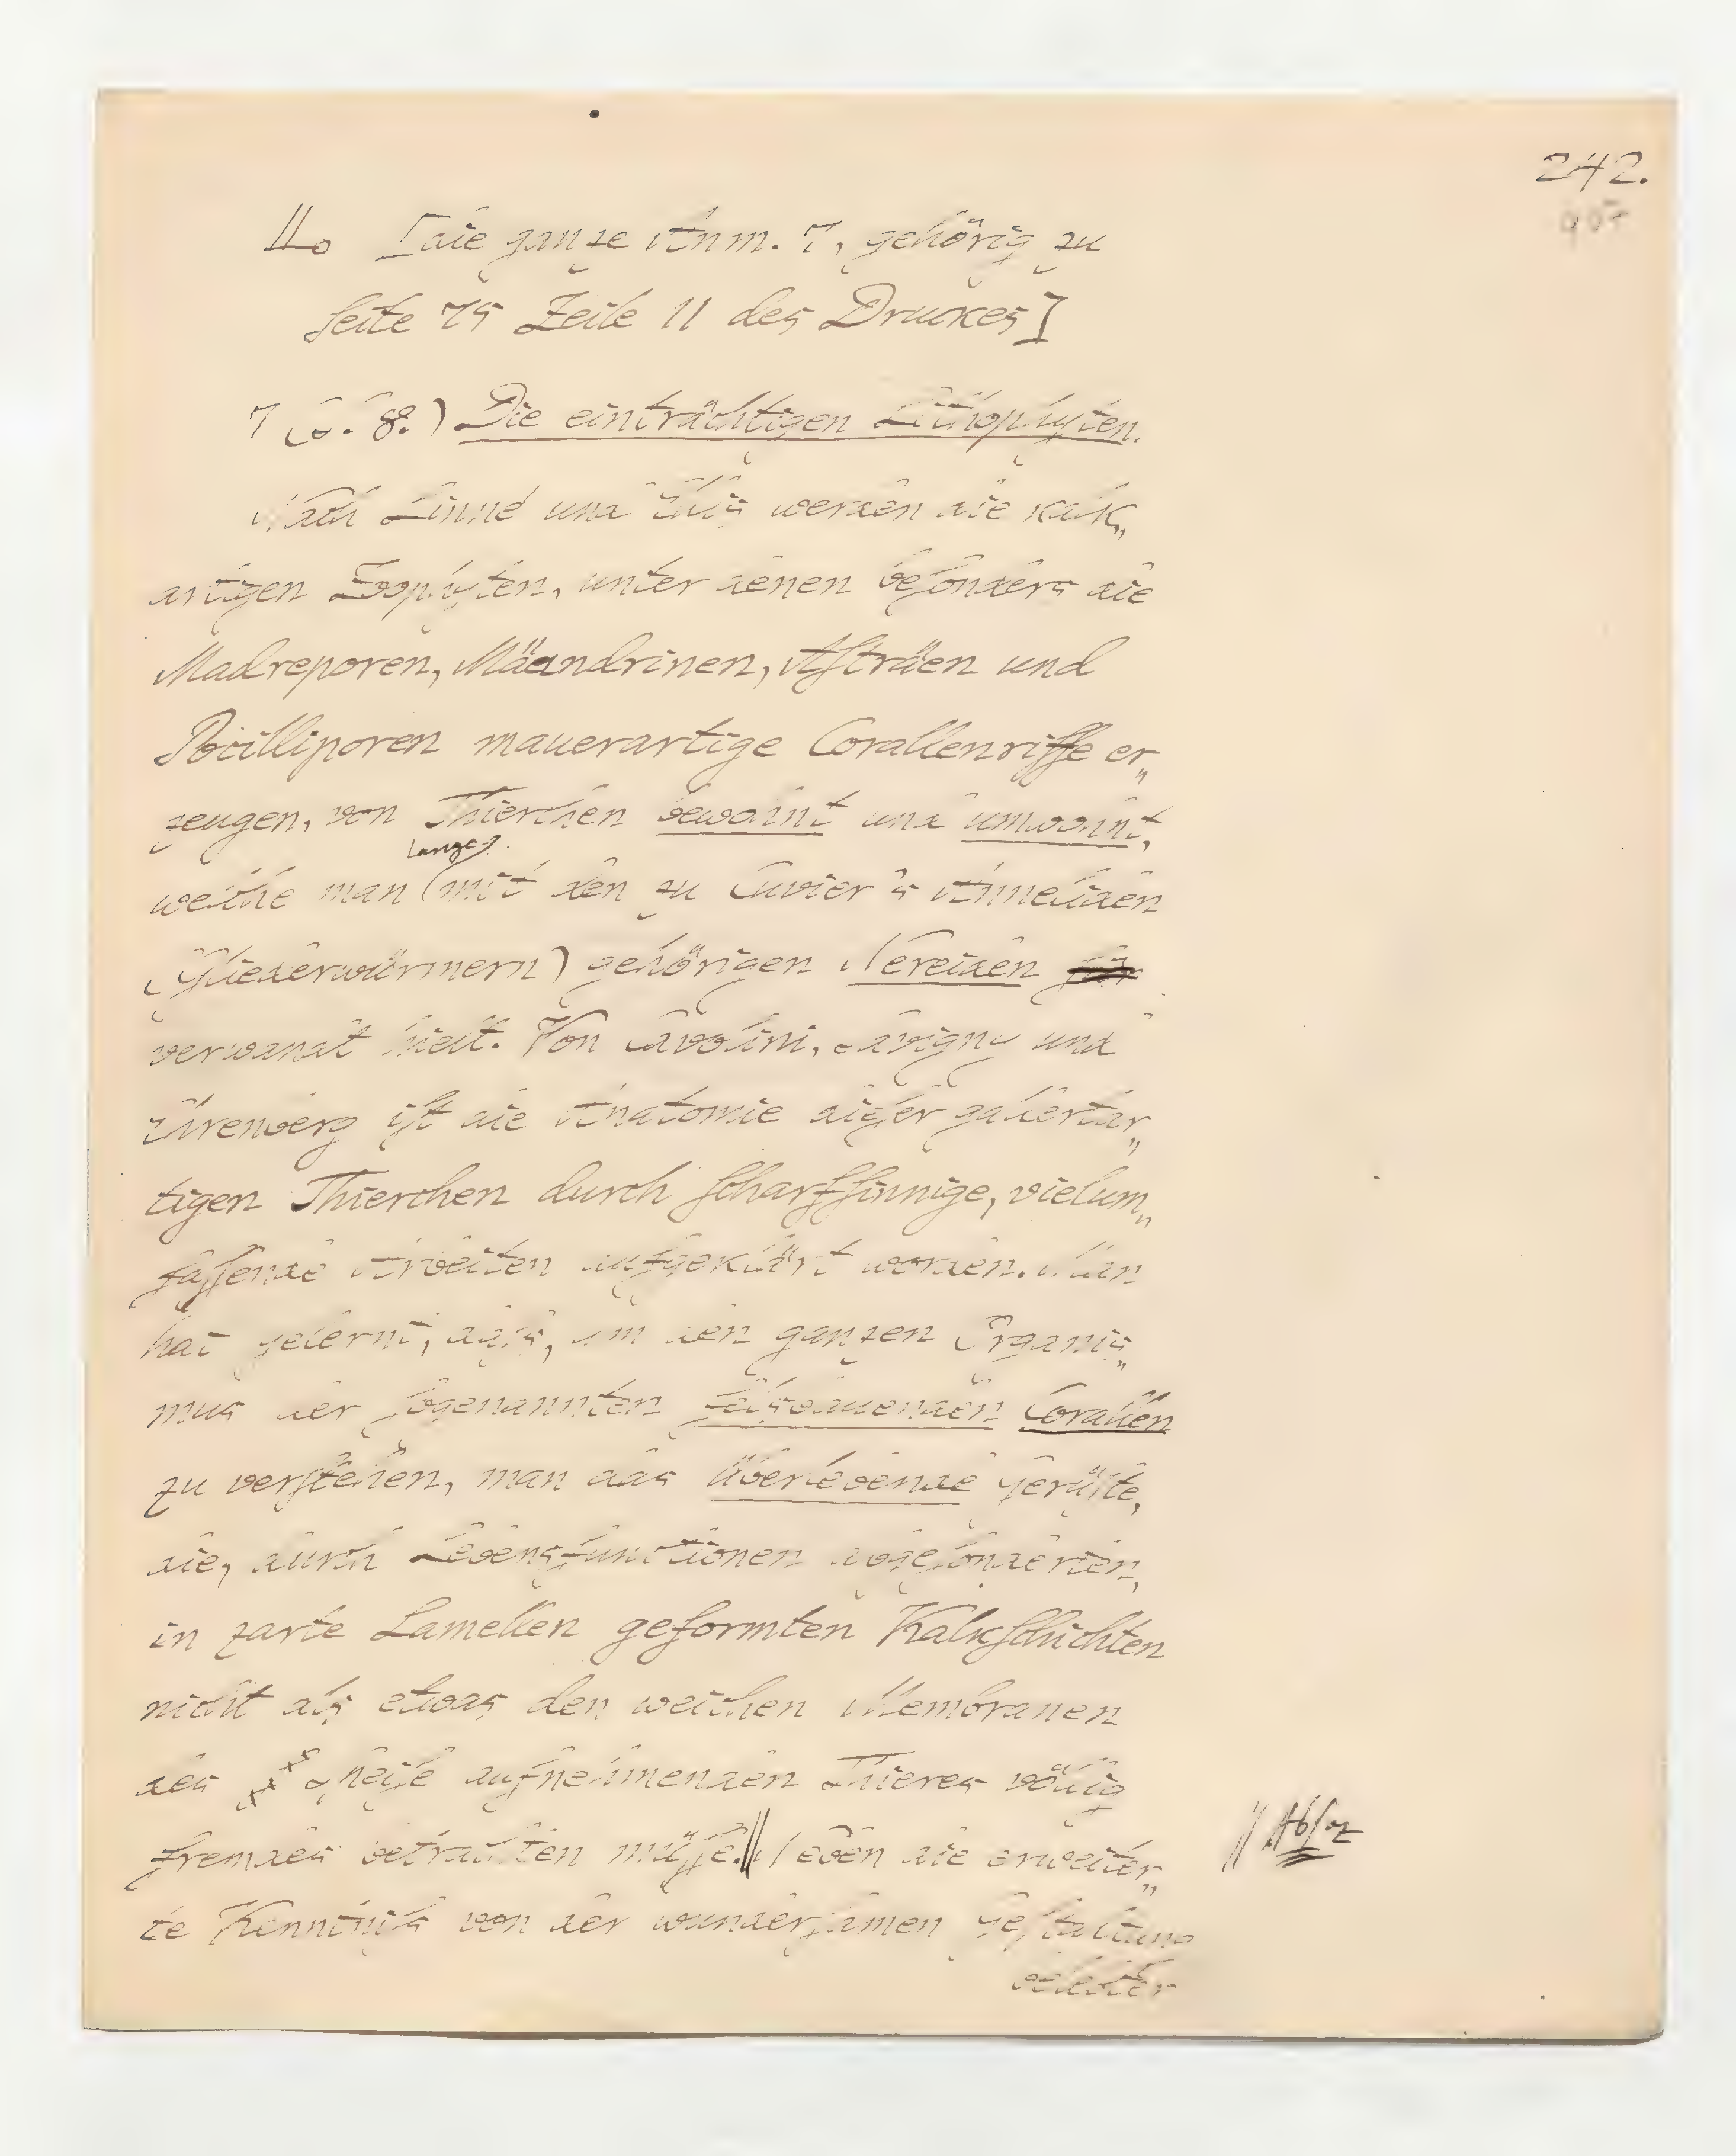 242.
907
11. [die ganze Anm. 7, gehörig zu
Seite 75 Zeile 11 des Druckes]
7 (S. 8.) Die einträchtigen Lithophyten.
Nach Linné und Ellis werden die kalk„
artigen Zoophyten, unter denen besonders die
Madreporen, Mäandrinen, Asträen und
Pocilliporen mauerartige Corallenriffe er„
zeugen, von Thierchen bewohnt und umwohnt,
lange
welche man (mit den zu Cuvier's Anneliden
(Gliederwürmern) gehörigen Nereiden für
verwandt hielt. Von Cavolini, Savigny und
Ehrenberg ist die Anatomie dieser gallertar„
tigen Thierchen durch scharfsinnige, vielum„
fassende Arbeiten aufgeklärt worden. Man
hat gelernt, daß, um den ganzen Organis„
mus der sogenannten felsbauenden Corallen
zu verstehen, man das überlebende Gerüste,
die, durch Lebensfunctionen abgesonderten,
in zarte Lamellen geformten Kalkschichten
nicht als etwas den weichen Membranen
des Speise aufnehmenden Thieres völlig
fremdes betrachten müsse.|| Neben die erweiter„
|| Absaz
te Kenntniß von der wundersamen Gestaltung
belebter